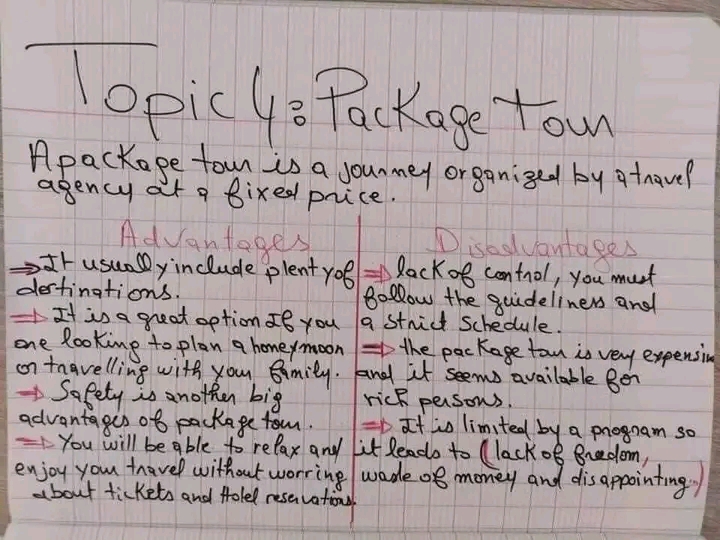 Topic 4: Package Tour
A package tour is a journey organized by a travel
agency at a fixed price.
Advantages
⇒ It usually include plenty of
dertinations.
⇒ It is a great option If you
are looking to plan a honeymoon
or travelling with your family.
⇒ Safety is another big
advantages of package tour.
⇒ You will be able to relax and
enjoy your travel without worring
about tickets and Hotel reservations.
Disadvantages
⇒ lack of control, you must
follow the guideliness and
a strict schedule.
⇒ the package tour is very expensive
and it seems available for
rich persons.
⇒ It is limited by a program so
it leads to (lack of freedom,
wade of money and disappointing.)